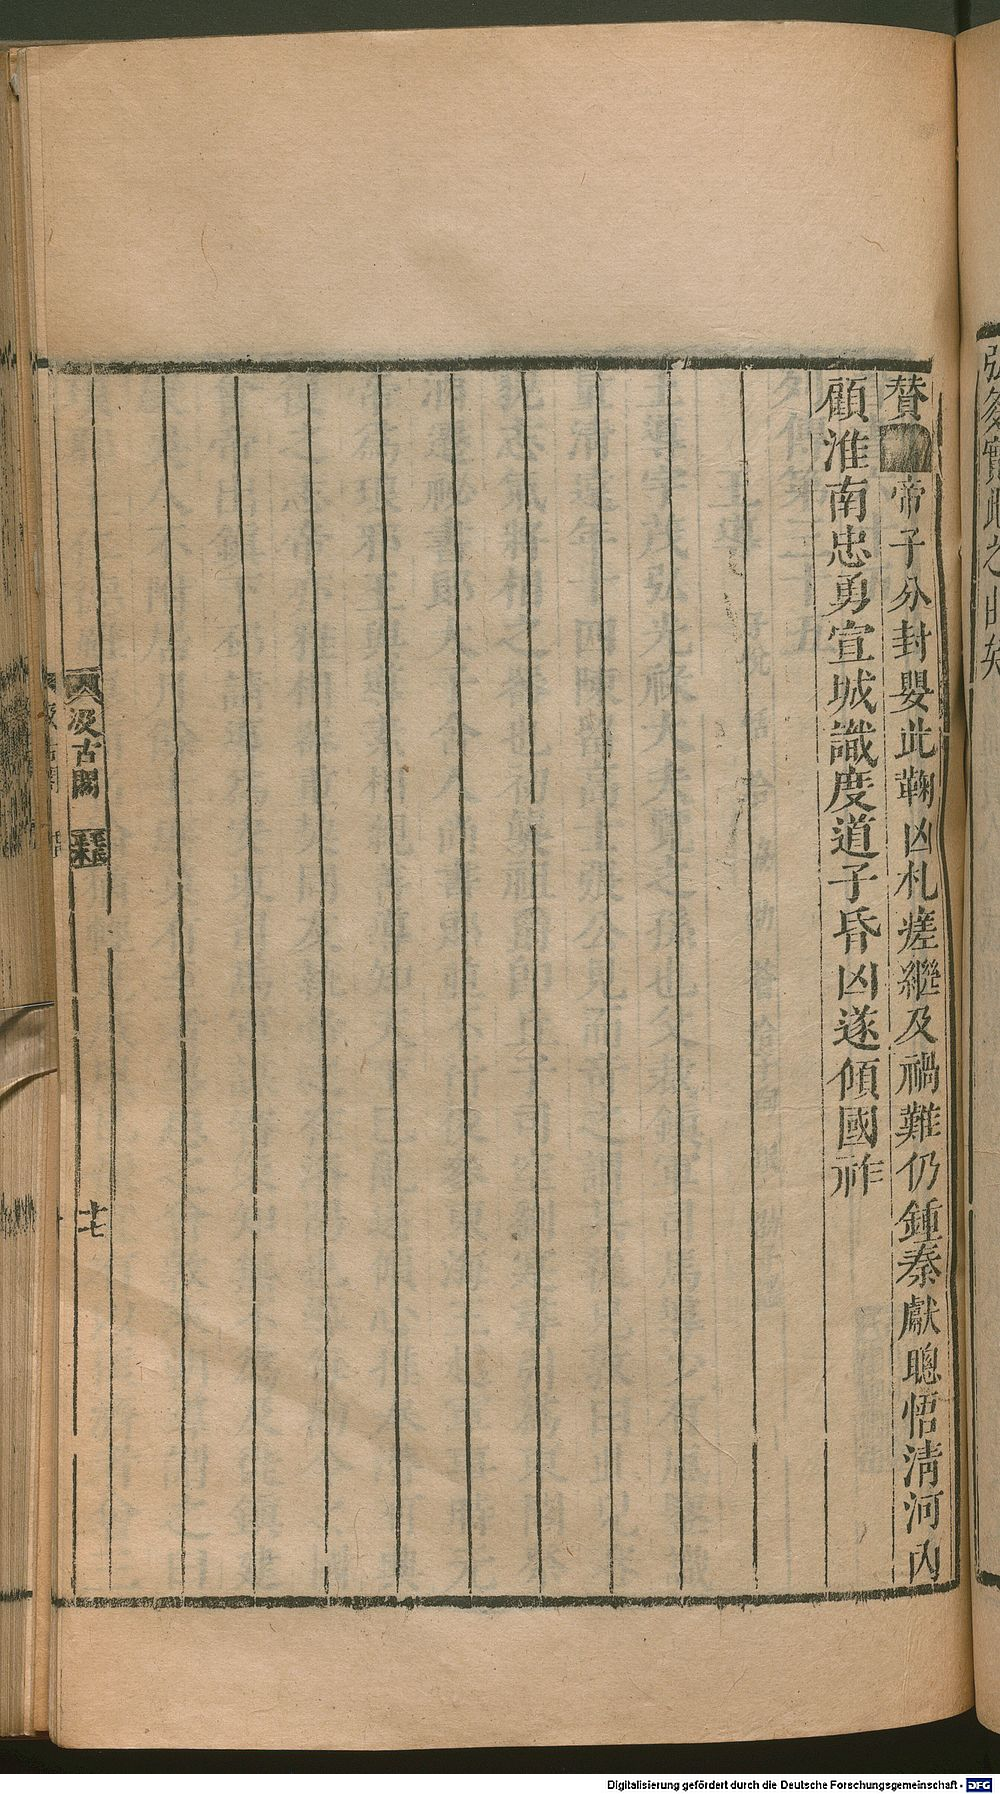 贊 帝子分封嬰此鞠凶札瘥繼及禍難仍鍾秦獻聰悟清河內
顧淮南忠勇宣城識度道子昏凶遂傾國祚
汲古閣
毛氏
十七
Digitalisierung gefördert durch die Deutsche Forschungsgemeinschaft - DFG